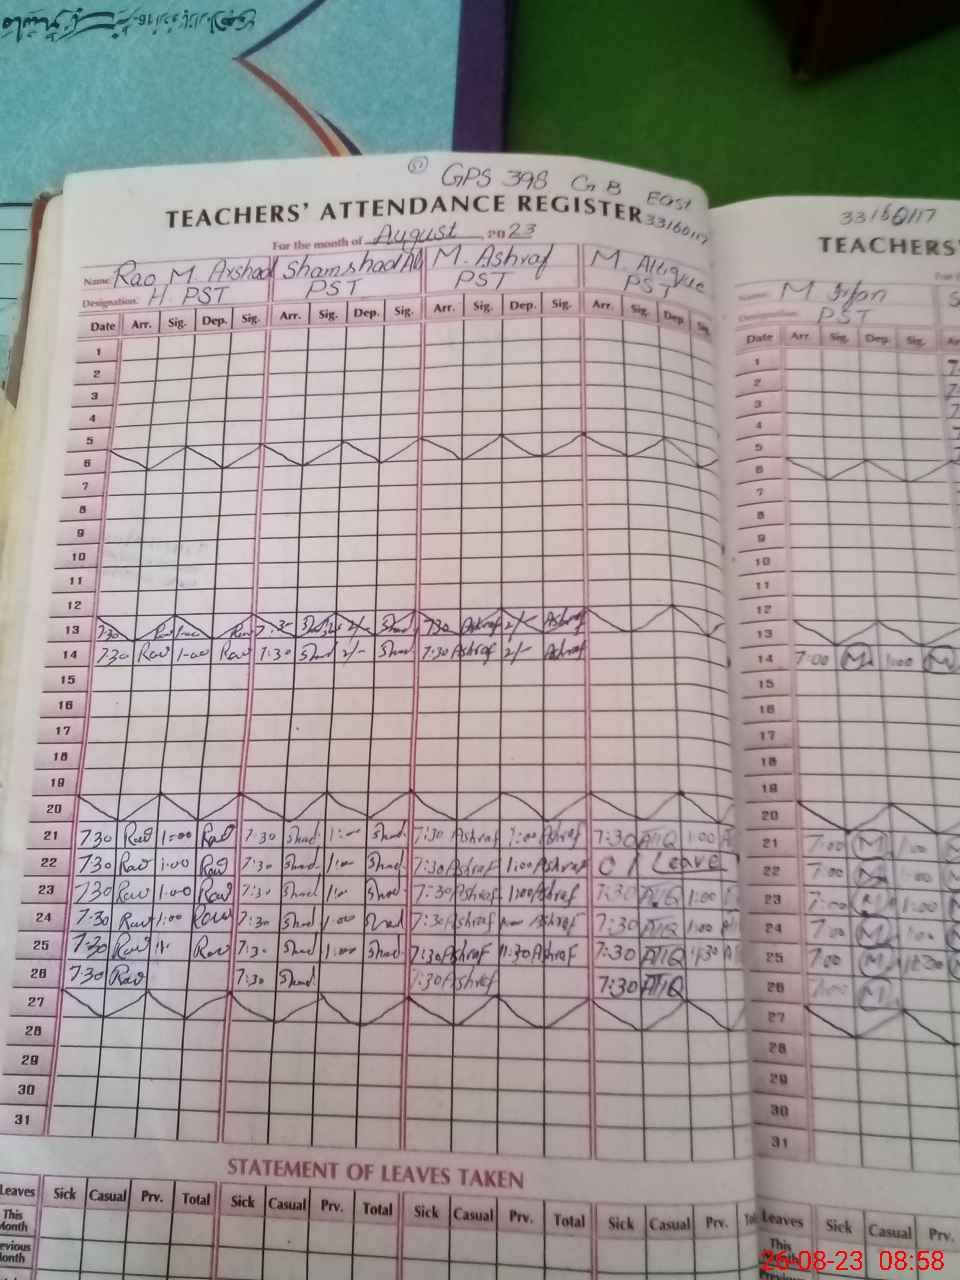 51 GPS 398 GB East
33160117
TEACHERS' ATTENDANCE REGISTER
33160117
TEACHERS'
For the month of August 2023
Name: Rao M. Arshad Shamshad M. Ashraf M. Attique
Designation. H. PST PST PST PST
Name: M. Irfan
Designation: PST
Date Arr. Sig. Dep. Sig. Arr. Sig. Dep. Sig. Arr. Sig. Dep. Sig. Arr. Sig. Dep. Sig.
Date Arr. Sig. Dep. Sig.
1 1
2 2
3 3
4 4
5 5
6 6
7 7
8 8
9 9
10 10
11 11
12 12
13 7:30 Rav 1-00 Rav 7:30 Shad 2/- Shad 7:30 Ashraf 2/- Ashraf 13
14 7:30 Rav 1-00 Rav 7:30 Shad 2/- Shad 7:30 Ashraf 2/- Ashraf 14 7:00 M 1:00 M
15 15
16 16
17 17
18 18
19 19
20 20
21 7:30 Rav 1:00 Rav 7:30 Shad 1:00 Shad 7:30 Ashraf 1:00 Ashraf 7:30 ATIQ 1:00 21 7:00 M 1:00
22 7:30 Rav 1:00 Rav 7:30 Shad 1:00 Shad 7:30 Ashraf 1:00 Ashraf C / Leave 22 7:00 M 1:00
23 7:30 Rav 1:00 Rav 7:30 Shad 1:00 Shad 7:30 Ashraf 1:00 Ashraf 7:30 ATIQ 1:00 23 7:00 M 1:00
24 7:30 Rav 1:00 Rav 7:30 Shad 1:00 Shad 7:30 Ashraf Ashraf 7:30 ATIQ 1:00 24 7:00 M 1:00
25 7:30 Rav Rav 7:30 Shad 1:00 Shad 7:30 Ashraf 11:30 Ashraf 7:30 ATIQ 25 7:00 M
26 7:30 Rav 7:30 Shad 7:30 Ashraf 7:30 ATIQ 26 7:00 M
27 27
28 28
29 29
30 30
31 31
STATEMENT OF LEAVES TAKEN
Leaves Sick Casual Prv. Total Sick Casual Prv. Total Sick Casual Prv. Total Sick Casual Prv. Leaves Sick Casual Prv.
This Month This
26-08-23 08:58